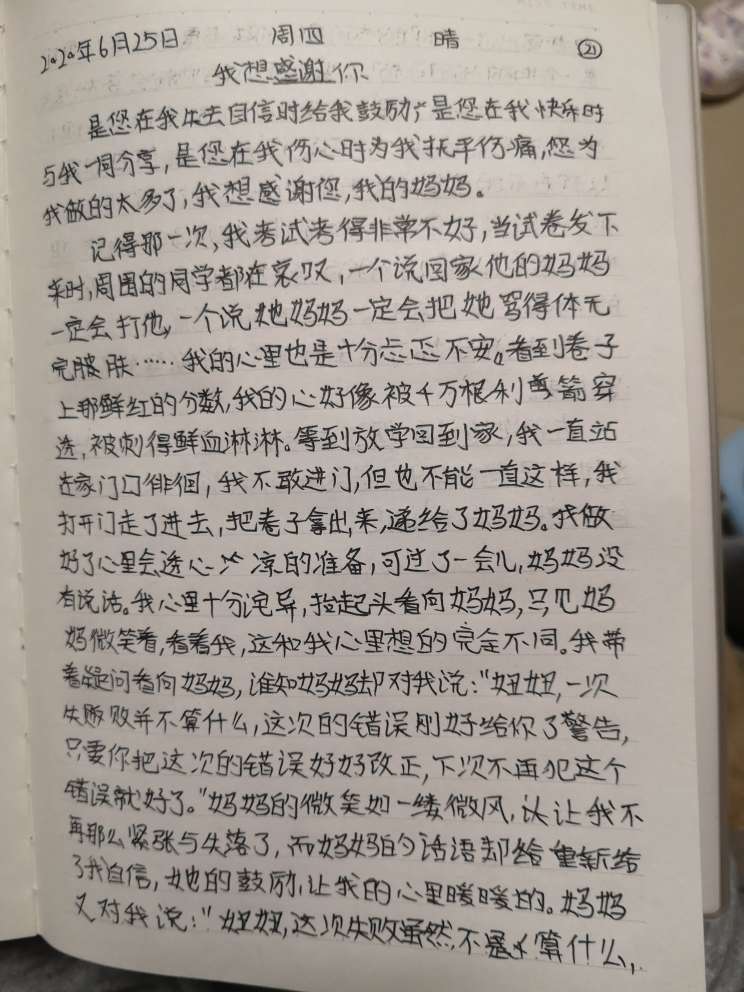 2020年6月25日 周四 晴 21
我想感谢你
是您在我失去自信时给我鼓励,是您在我快乐时
与我一同分享,是您在我伤心时为我抚平伤痛,您为
我做的太多了,我想感谢您,我的妈妈。
记得那一次,我考试考得非常不好,当试卷发下
来时,周围的同学都在哀叹,一个说回家他的妈妈
一定会打他,一个说她妈妈一定会把她骂得体无
完肤……我的心里也是十分忐忑不安。看到卷子
上那鲜红的分数,我的心好像被千万根利箭穿
透,被刺得鲜血淋淋。等到放学回到家,我一直站
在家门口徘徊,我不敢进门,但也不能一直这样,我
打开门走了进去,把卷子拿出来,递给了妈妈。我做
好了心里会透心凉的准备,可过了一会儿,妈妈没
有说话。我心里十分诧异,抬起头看向妈妈,只见妈
妈微笑着,看着我,这和我心里想的完全不同。我带
着疑问看向妈妈,谁知妈妈却对我说:“妞妞,一次
失败并不算什么,这次的错误刚好给你了警告,
只要你把这次的错误好好改正,下次不再犯这个
错误就好了。”妈妈的微笑如一缕微风,让我不
再那么紧张与失落了,而妈妈的话语却重新给
了我自信,她的鼓励,让我的心里暖暖的。妈妈
又对我说:“妞妞,这次失败虽然不算什么,